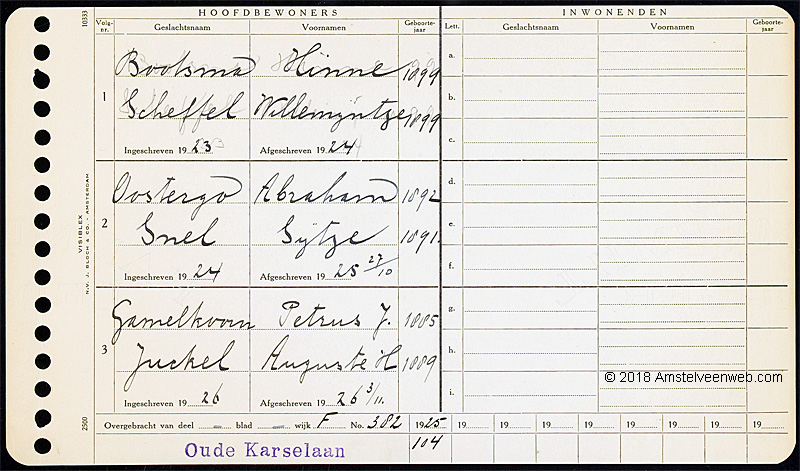 HOOFDBEWONERS INWONENDEN
Volg-nr. Geslachtsnaam Voornamen Geboorte-jaar Lett. Geslachtsnaam Voornamen Geboorte-jaar
10333
1
Bootsma Hinne 1899 a.
Scheffel Willemijntze 1899 b.
c.
Ingeschreven 19 23 Afgeschreven 19 24
2
Oostergo Abraham 1892 d.
Snel Sijtze 1891. e.
f.
Ingeschreven 19 24 Afgeschreven 19 25 27/10
VISIBLEX
N.V. J. BLOCH & CO. - AMSTERDAM
3
Gamelkoorn Petrus J. 1885 g.
Juckel Auguste H 1889 h.
i.
Ingeschreven 19 26 Afgeschreven 19 26 3/11.
© 2018 Amstelveenweb.com
2500
Overgebracht van deel — blad — wijk F No. 382 1925 19 19 19 19 19 19 19
Oude Karselaan 104